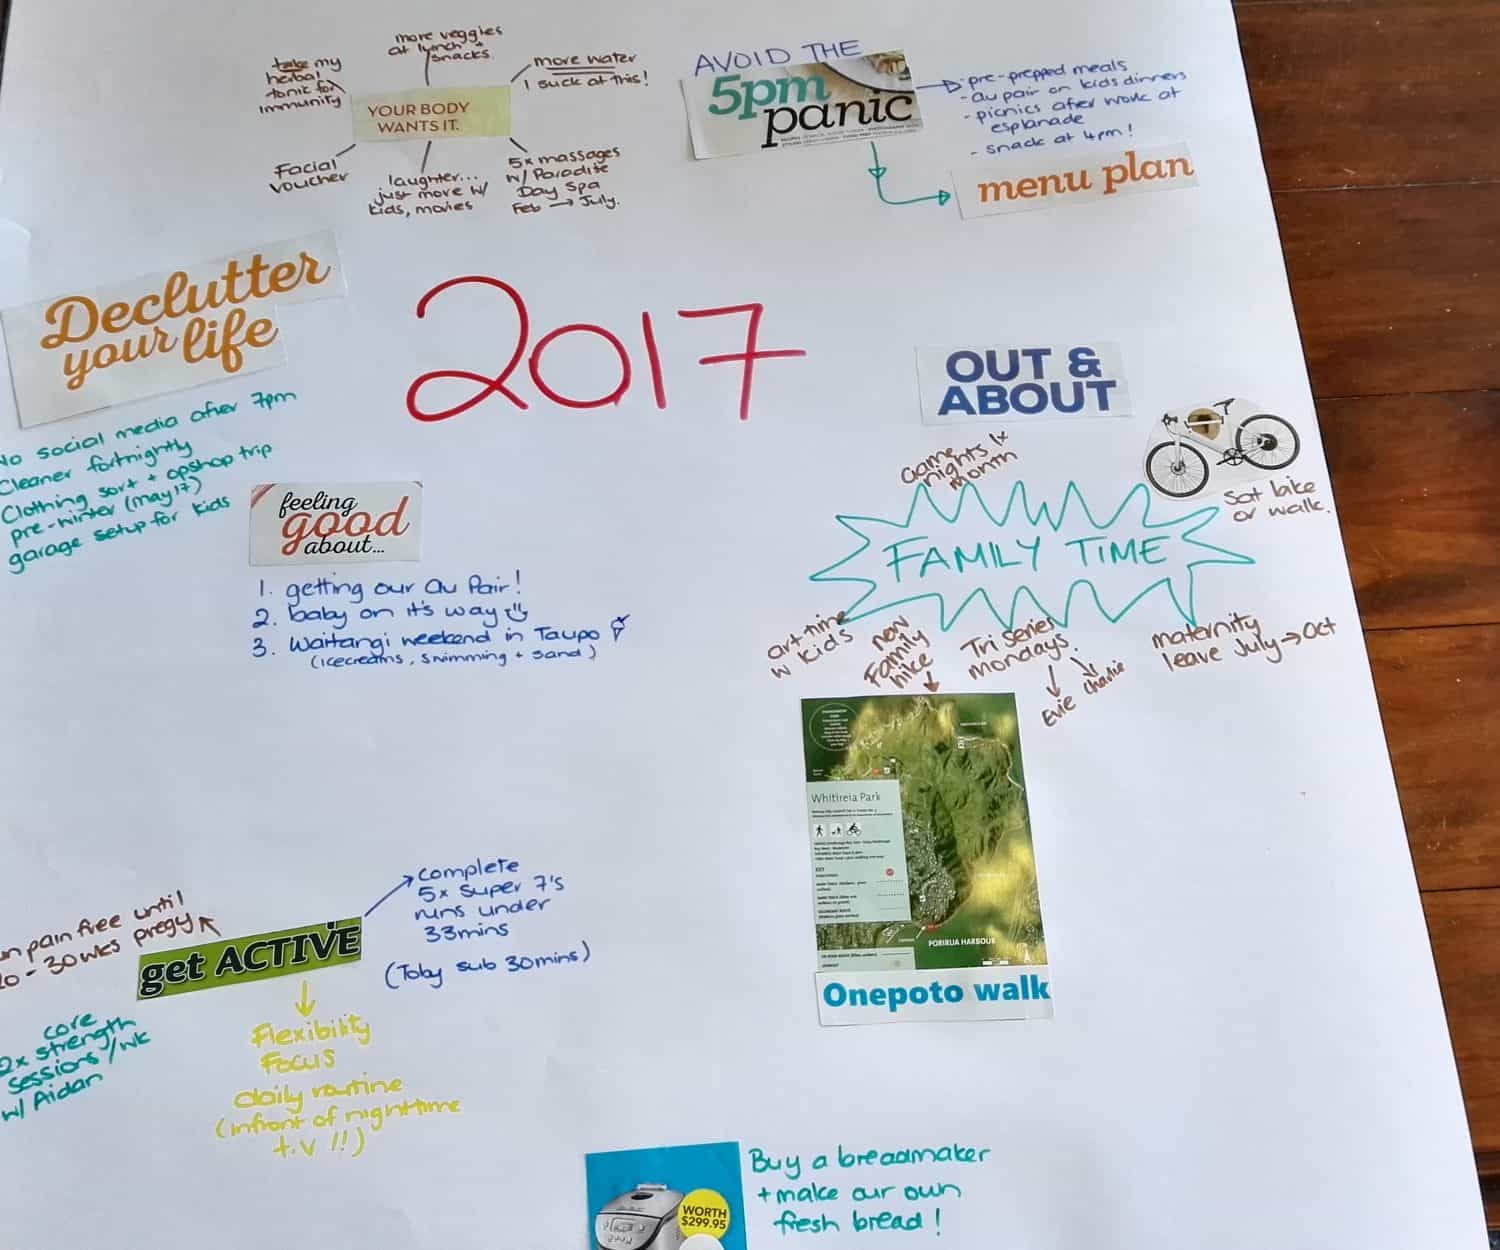 take my
herbal
tonic for
immunity
more veggies
at lunch +
snacks.
more water
I suck at this!
YOUR BODY
WANTS IT.
Facial
voucher
laughter...
just more w/
kids, movies
5x massages
w/ Paradise
Day Spa
Feb → July.
AVOID THE
5pm
panic
- pre-prepped meals
- au pair on kids dinners
- picnics after work at
esplanade
- snack at 4pm!
menu plan
Declutter
your life
No social media after 7pm
Cleaner fortnightly
Clothing sort + opshop trip
pre-winter (may 17)
garage setup for kids
2017
feeling
good
about...
1. getting our Au Pair!
2. baby on it's way
3. Waitangi weekend in Taupo
(icecreams, swimming + sand)
OUT &
ABOUT
Game
nights 1x
month
Sat bike
or walk.
FAMILY TIME
art-time
w kids
new
Family
hike
Tri Series
mondays.
Evie
Charlie
maternity
leave July → Oct
Whitireia Park
KEY
PORIRUA HARBOUR
Onepoto walk
pain free until
20-30wks pregy
get ACTIVE
complete
5x Super 7's
runs under
33mins
(Toby sub 30mins)
core
2x strength
sessions/wk
w/ Aidan
Flexibility
Focus
daily routine
(infront of nighttime
t.v !!)
WORTH
$299.95
Buy a breadmaker
+ make our own
fresh bread!